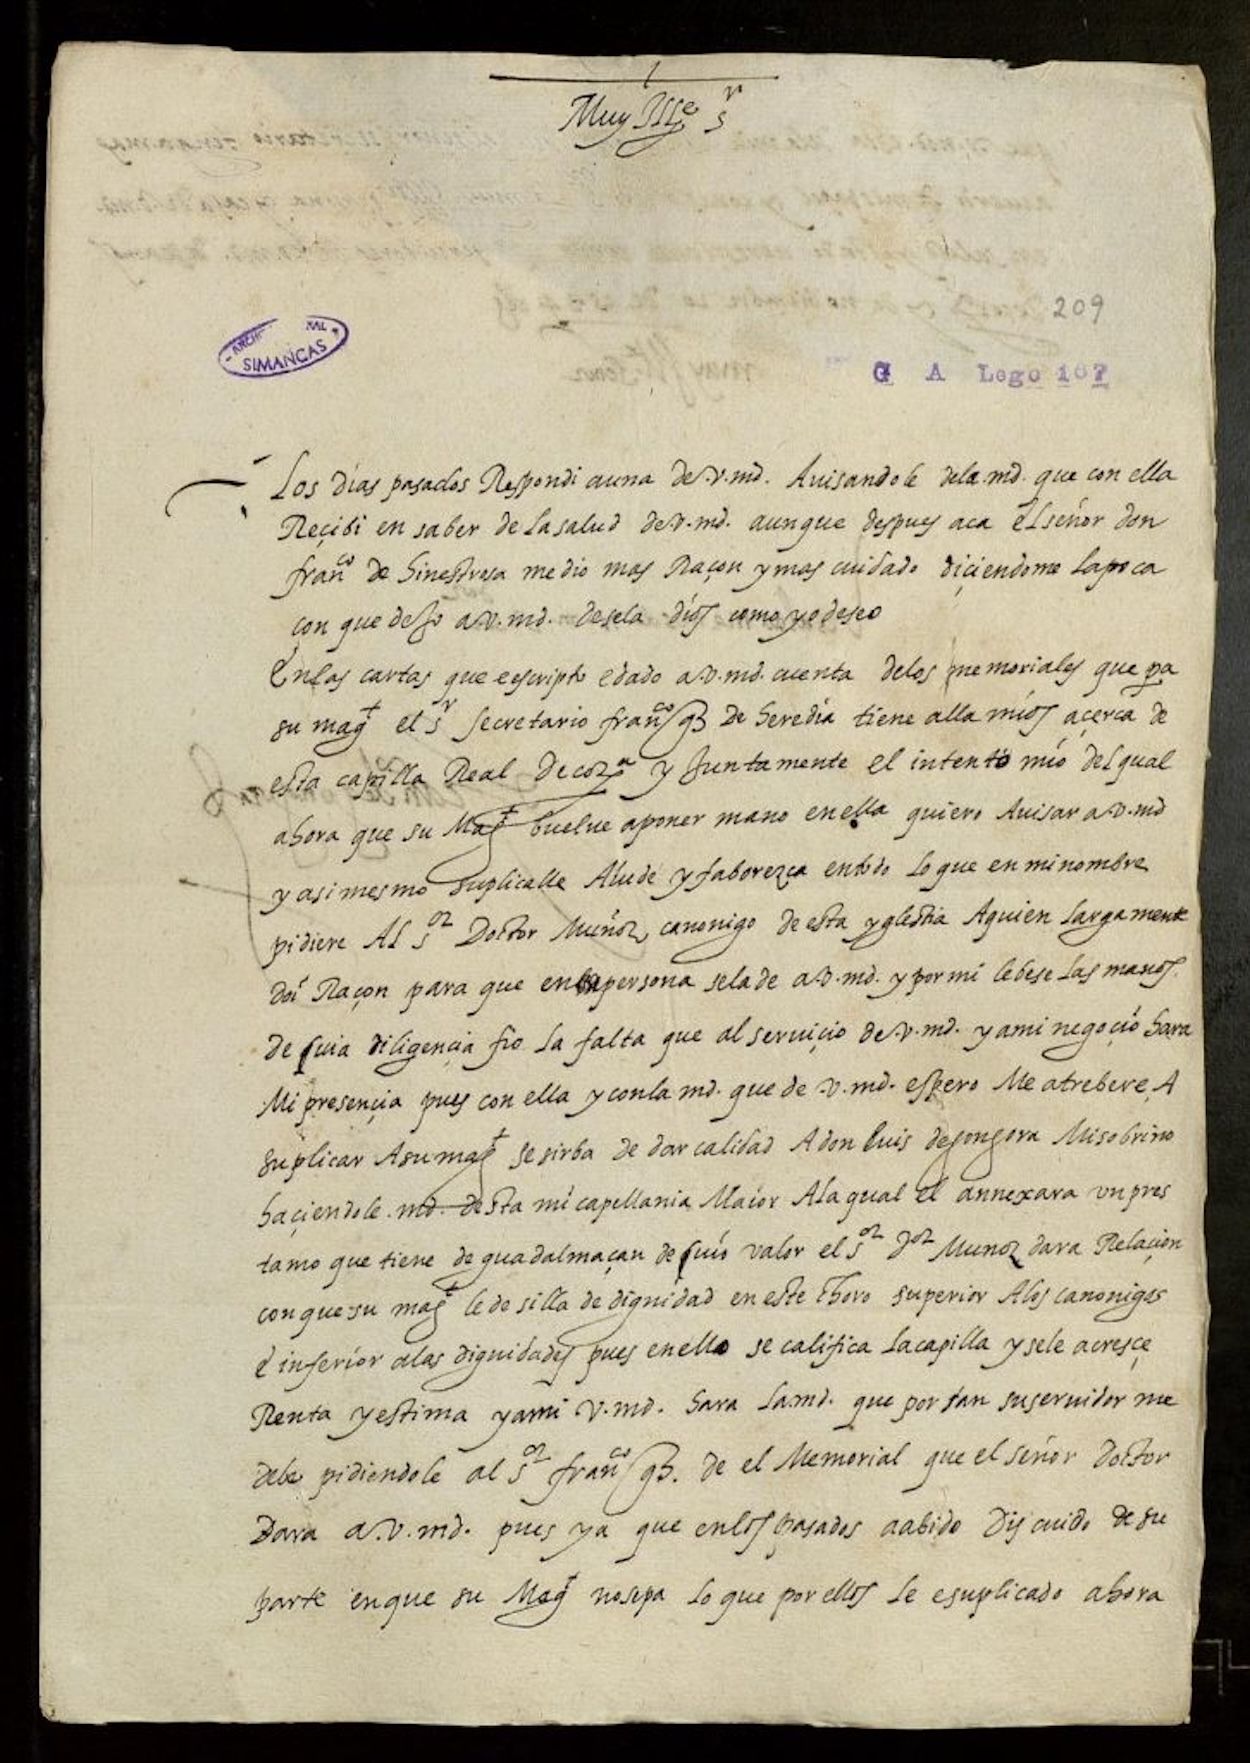 Muy Ille s^r
209
SIMANCAS
G A Lego 167
Los días pasados Respondi auna de.v.md. Auisandole dela.md. que con ella
Reçibi en saber de la salud de.v.md. aunque despues aca el señor don
fran^co de hinestrosa me dio mas Raçon y mas cuidado diçiendome la poca
con que desso a.v.md. desela dios como yo deseo
En las cartas que e escripto e dado a.v.md. cuenta delos memoriales que pa
su mag^t el s^r secretario fran^co gz De heredia tiene alla mios açerca de
esta capilla Real de cor^a y Juntamente el intento mio del qual
ahora que su Mag^t buelue a poner mano en ella quiero Auisar a.v.md
y asi mesmo suplicalle Aiude y faborezca en todo lo que en mi nombre
pidiere Al s^or Doctor Muñoz canonigo de esta yglesia Aquien largamente
doi Raçon para que en persona sela de a.v.md. y por mi le bese las manos.
de cuia diligençia fio la falta que al seruiçio de.v.md. y ami negoçio hara
Mi presençia pues con ella y con la md. que de .v.md. espero Me atrebere A
suplicar Asu mag^t se sirba de dar calidad Adon luis de gongora Mi sobrino
haçiendole .md. desta mi capellania Maior Ala qual el annexara vn pres
tamo que tiene de guadalmaçan de cuio valor el s^or d^or Munoz dara Relaçion
con que su mag^t le de silla de dignidad en este Choro superior Alos canonigos
e inferior alas dignidades pues en ello se califica la capilla y sele acresçe
Renta y estima y ami v.md. hara la.md. que por tan su seruidor me
debe pidiendole al s^or fran^co gz. de el Memorial que el señor doctor
Dara a.v.md. pues ya que en los pasados a abido discuido de su
parte en que su Mag^t no sepa lo que por ellos le e suplicado ahora